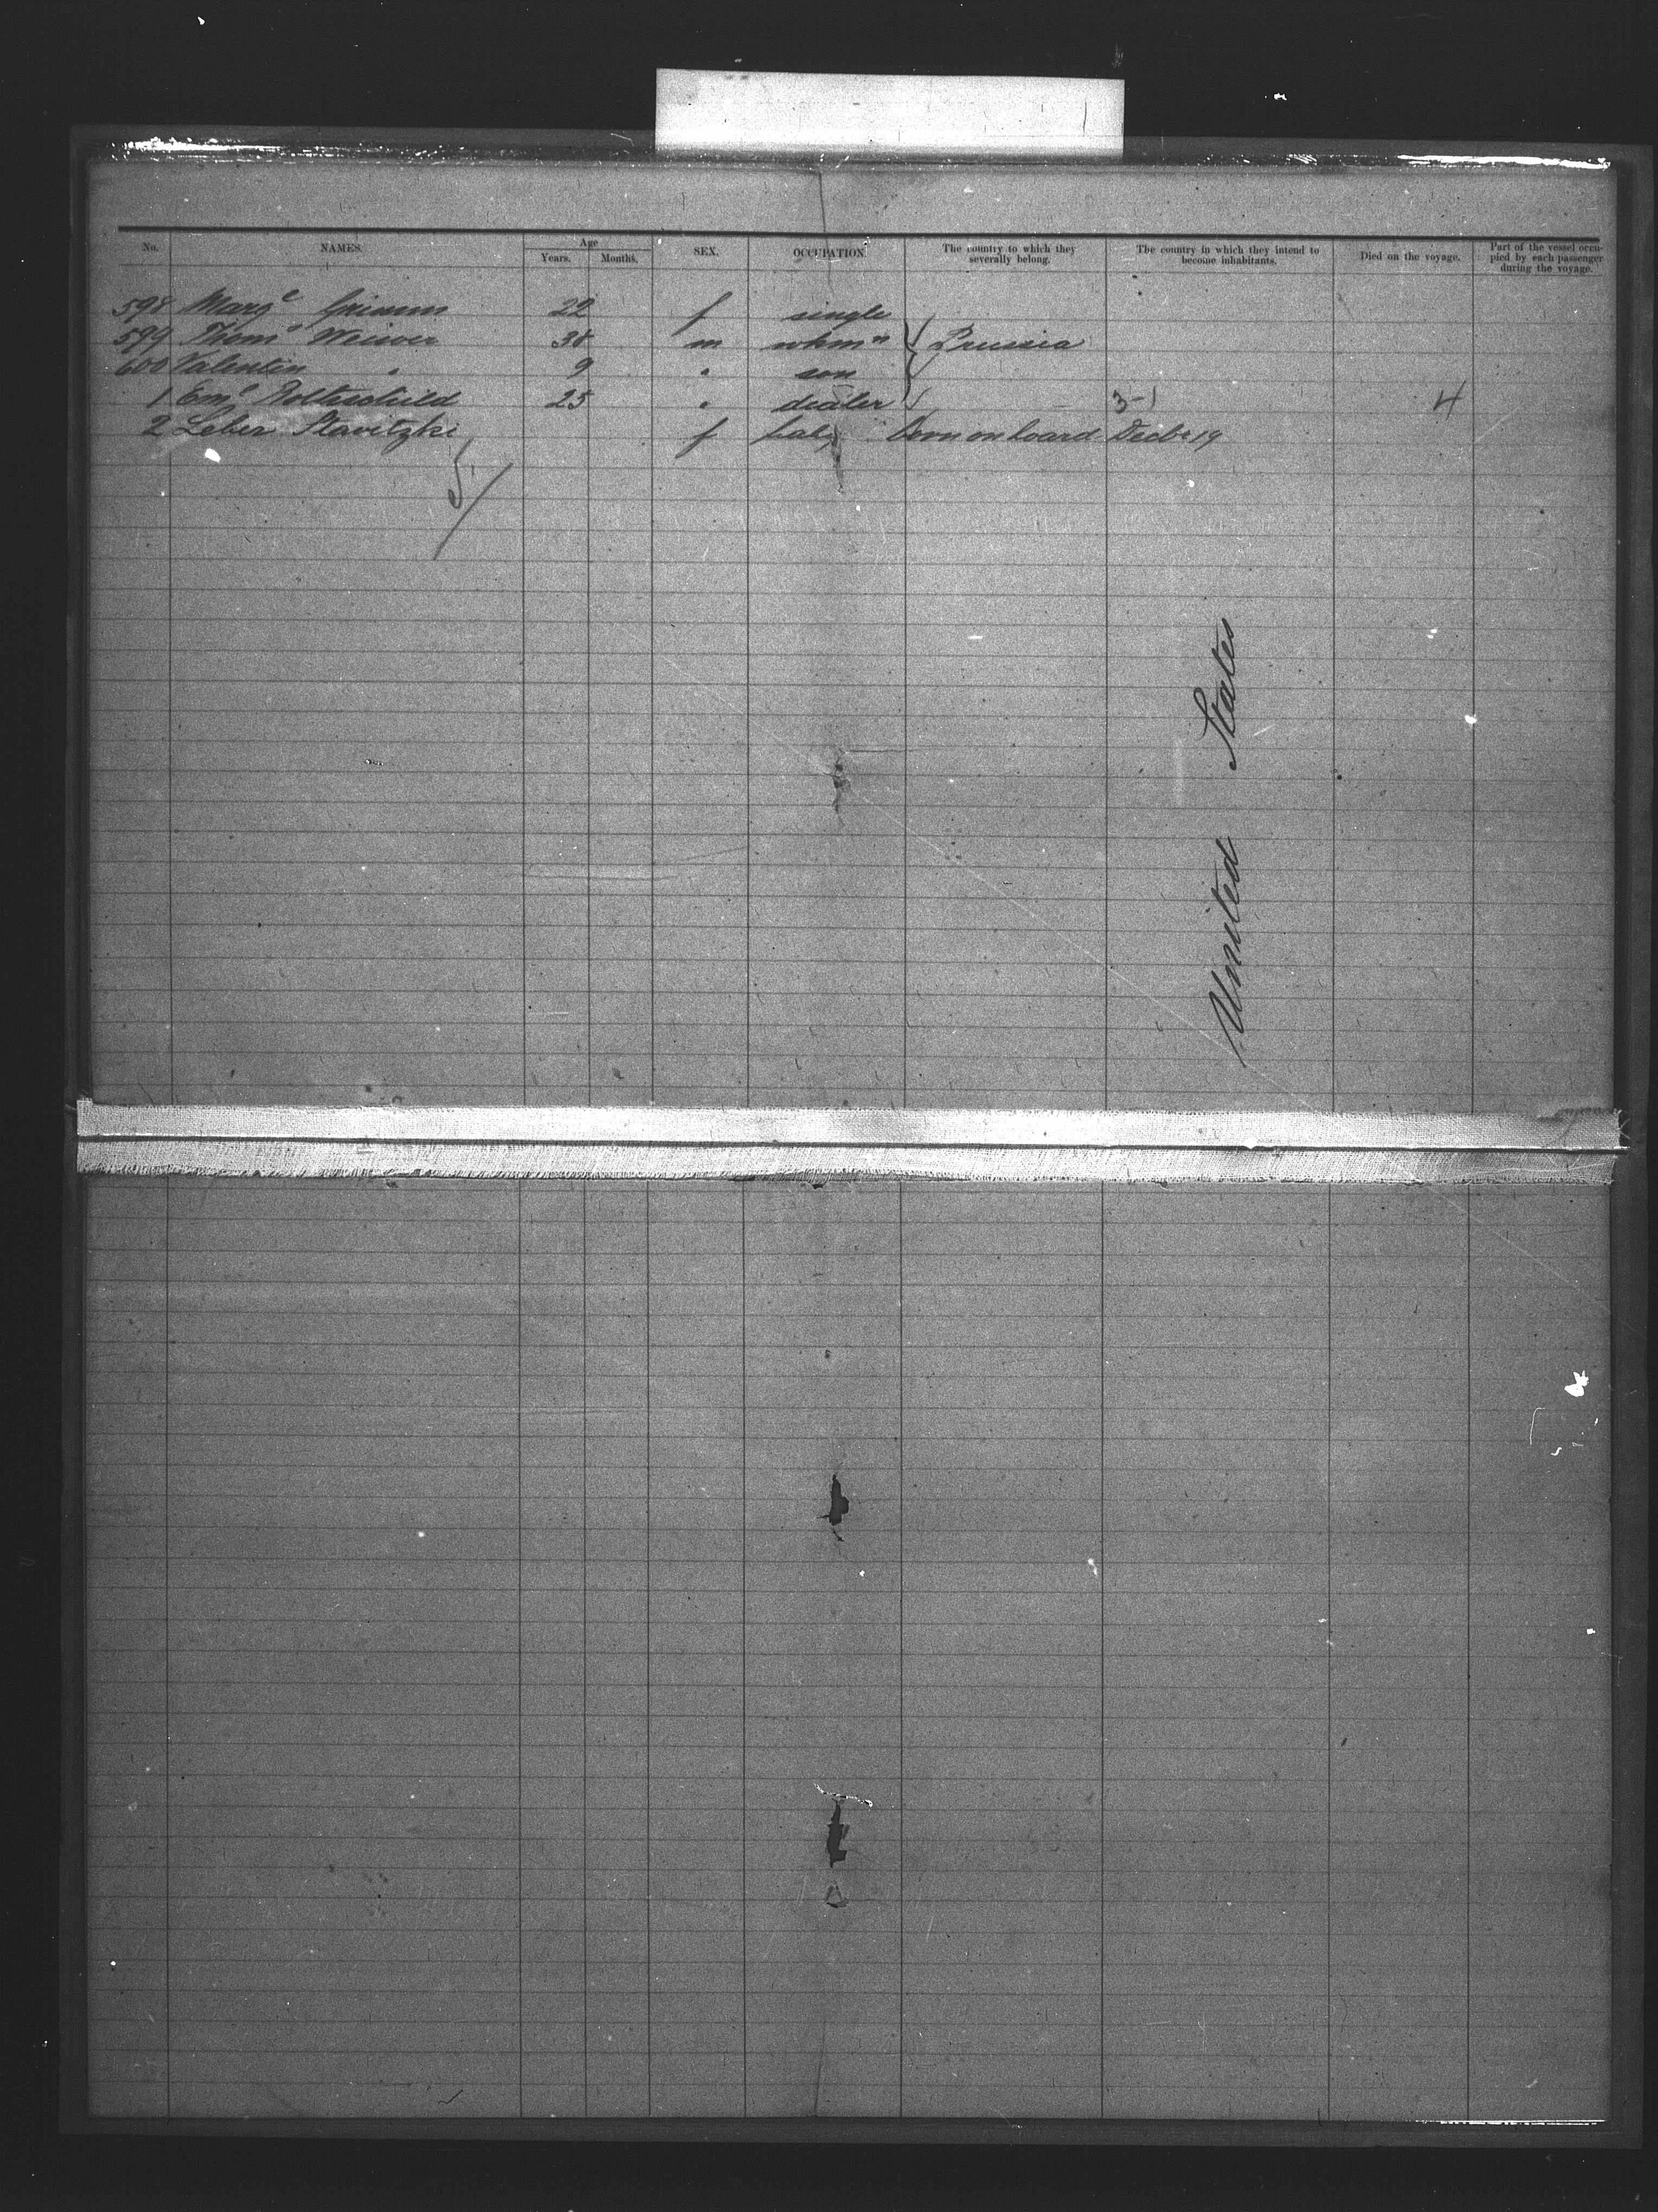 No. NAMES. Age Years. Months. SEX. OCCUPATION. The country to which they severally belong. The country in which they intend to become inhabitants. Died on the voyage. Part of the vessel occupied by each passenger during the voyage.
598 Marg^e Grimm 22 f single
599 Thom^s Weiwer 38 m wkm^n Prussia
600 Valentin " 9 " son
1 Em^l Rothschild 25 " dealer 3-1 4
2 Leber Slavitzki f baby Born on board Decbr 19
5/
United States